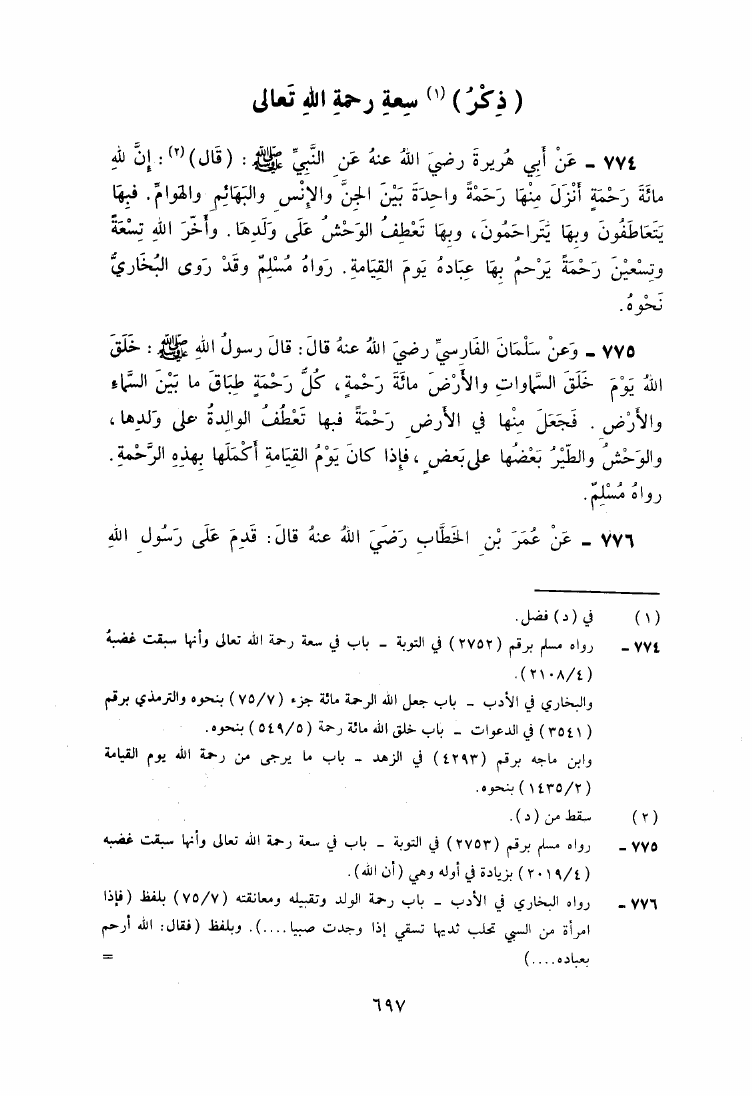 ( ذِكْرُ ) (١) سِعةِ رحمةِ اللهِ تَعالى
٧٧٤ ـ عَنْ أبي هُريرةَ رضيَ اللهُ عنهُ عَنِ النَّبيِّ ﷺ : (قَالَ)(٢) : إنَّ للهِ
مائةَ رَحْمَةٍ أنْزَلَ مِنْهَا رَحْمَةً واحِدَةً بَيْنَ الجنِّ والإنْسِ والبَهائِمِ والهَوامِّ. فبِهَا
يَتَعَاطَفُونَ وبِهَا يَتَراحَمُونَ، وبِهَا تَعْطِفُ الوَحْشُ عَلَى وَلَدِهَا. وأخَّرَ اللهُ تِسْعَةً
وتِسْعْينَ رَحْمَةً يَرْحمُ بِهَا عِبَادَهُ يَومَ القِيَامَةِ. رَواهُ مُسْلِمٌ وقَدْ رَوى البُخَاريُّ
نَحْوهُ.
٧٧٥ ـ وَعنْ سَلْمَانَ الفَارسيِّ رضيَ اللهُ عنهُ قالَ: قالَ رسولُ اللهِ ﷺ : خَلَقَ
اللهُ يَوْمَ خَلَقَ السَّماواتِ والأرْضَ مائةَ رَحْمةٍ، كلُّ رَحْمةٍ طِبَاقَ ما بَيْنَ السَّماءِ
والأرْضِ . فَجَعَلَ مِنْها في الأرضِ رَحْمَةً فبها تَعْطُفُ الوالِدةُ على وَلَدِها ،
والوَحْشُ والطَّيْرُ بَعْضُها على بَعضٍ ، فإذا كانَ يَوْمُ القِيامةِ أكْمَلَها بِهذِهِ الرَّحْمةِ.
رواهُ مُسْلِمٌ.
٧٧٦ ـ عَنْ عُمَرَ بْنِ الخَطَّابِ رَضيَ اللهُ عنهُ قالَ: قَدِمَ عَلَى رَسُولِ اللهِ
(١) في (د) فضل.
٧٧٤ ـ رواه مسلم برقم (٢٧٥٢) في التوبة ـ باب في سعة رحمة الله تعالى وأنها سبقت غضبه
(٢١٠٨/٤).
والبخاري في الأدب ـ باب جعل الله الرحمة مائة جزء (٧٥/٧) بنحوه والترمذي برقم
(٣٥٤١) في الدعوات ـ باب خلق الله مائة رحمة (٥٤٩/٥) بنحوه.
وابن ماجه برقم (٤٢٩٣) في الزهد ـ باب ما يرجى من رحمة الله يوم القيامة
(١٤٣٥/٢) بنحوه.
(٢) سقط من (د).
٧٧٥ ـ رواه مسلم برقم (٢٧٥٣) في التوبة ـ باب في سعة رحمة الله تعالى وأنها سبقت غضبه
(٢٠١٩/٤) بزيادة في أوله وهي (أن الله).
٧٧٦ ـ رواه البخاري في الأدب ـ باب رحمة الولد وتقبيله ومعانقته (٧٥/٧) بلفظ (فإذا
امرأة من السبي تحلب ثديها تسقي إذا وجدت صبيا....). وبلفظ (فقال: الله أرحم
بعباده....) =
٦٩٧